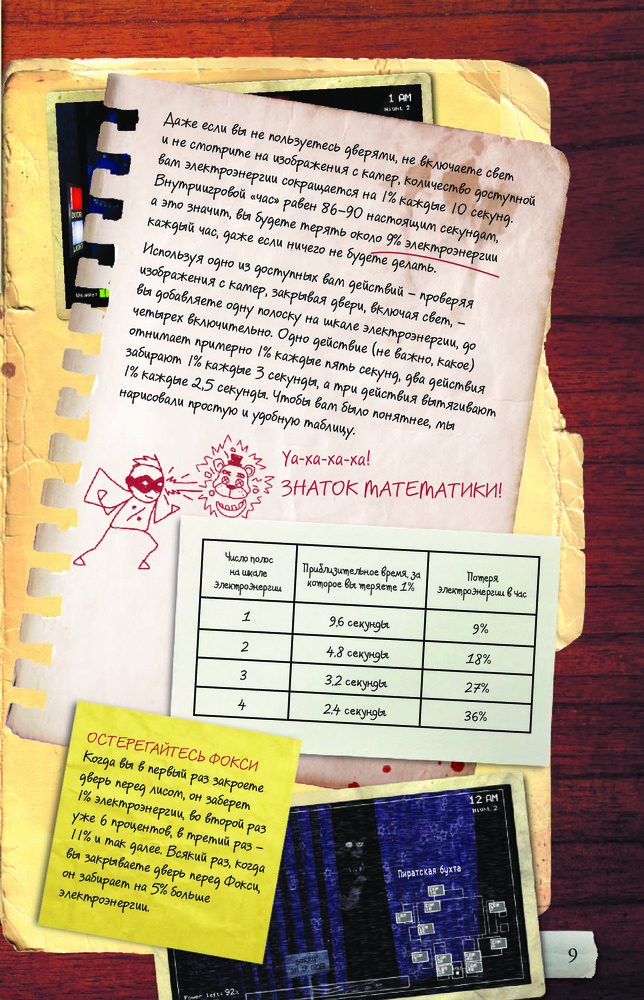 1 AM
Night 2
Даже если вы не пользуетесь дверями, не включаете свет
и не смотрите на изображения с камер, количество доступной
вам электроэнергии сокращается на 1% каждые 10 секунд.
Внутриигровой «час» равен 86–90 настоящим секундам,
а это значит, вы будете терять около 9% электроэнергии
каждый час, даже если ничего не будете делать.
Используя одно из доступных вам действий – проверяя
изображения с камер, закрывая двери, включая свет, –
вы добавляете одну полоску на шкале электроэнергии, до
четырех включительно. Одно действие (не важно, какое)
отнимает примерно 1% каждые пять секунд, два действия
забирают 1% каждые 3 секунды, а три действия вытягивают
1% каждые 2,5 секунды. Чтобы вам было понятнее, мы
нарисовали простую и удобную таблицу.
DOOR
LIGHT
Уа-ха-ха-ха!
ЗНАТОК МАТЕМАТИКИ!
Число полос на шкале электроэнергии
Приблизительное время, за которое вы теряете 1%
Потеря электроэнергии в час
1 9,6 секунды 9%
2 4,8 секунды 18%
3 3,2 секунды 27%
4 2,4 секунды 36%
ОСТЕРЕГАЙТЕСЬ ФОКСИ
Когда вы в первый раз закроете
дверь перед лисом, он заберет
1% электроэнергии, во второй раз
уже 6 процентов, в третий раз –
11% и так далее. Всякий раз, когда
вы закрываете дверь перед Фокси,
он забирает на 5% больше
электроэнергии.
12 AM
Night 2
Пиратская бухта
Power left: 92%
9